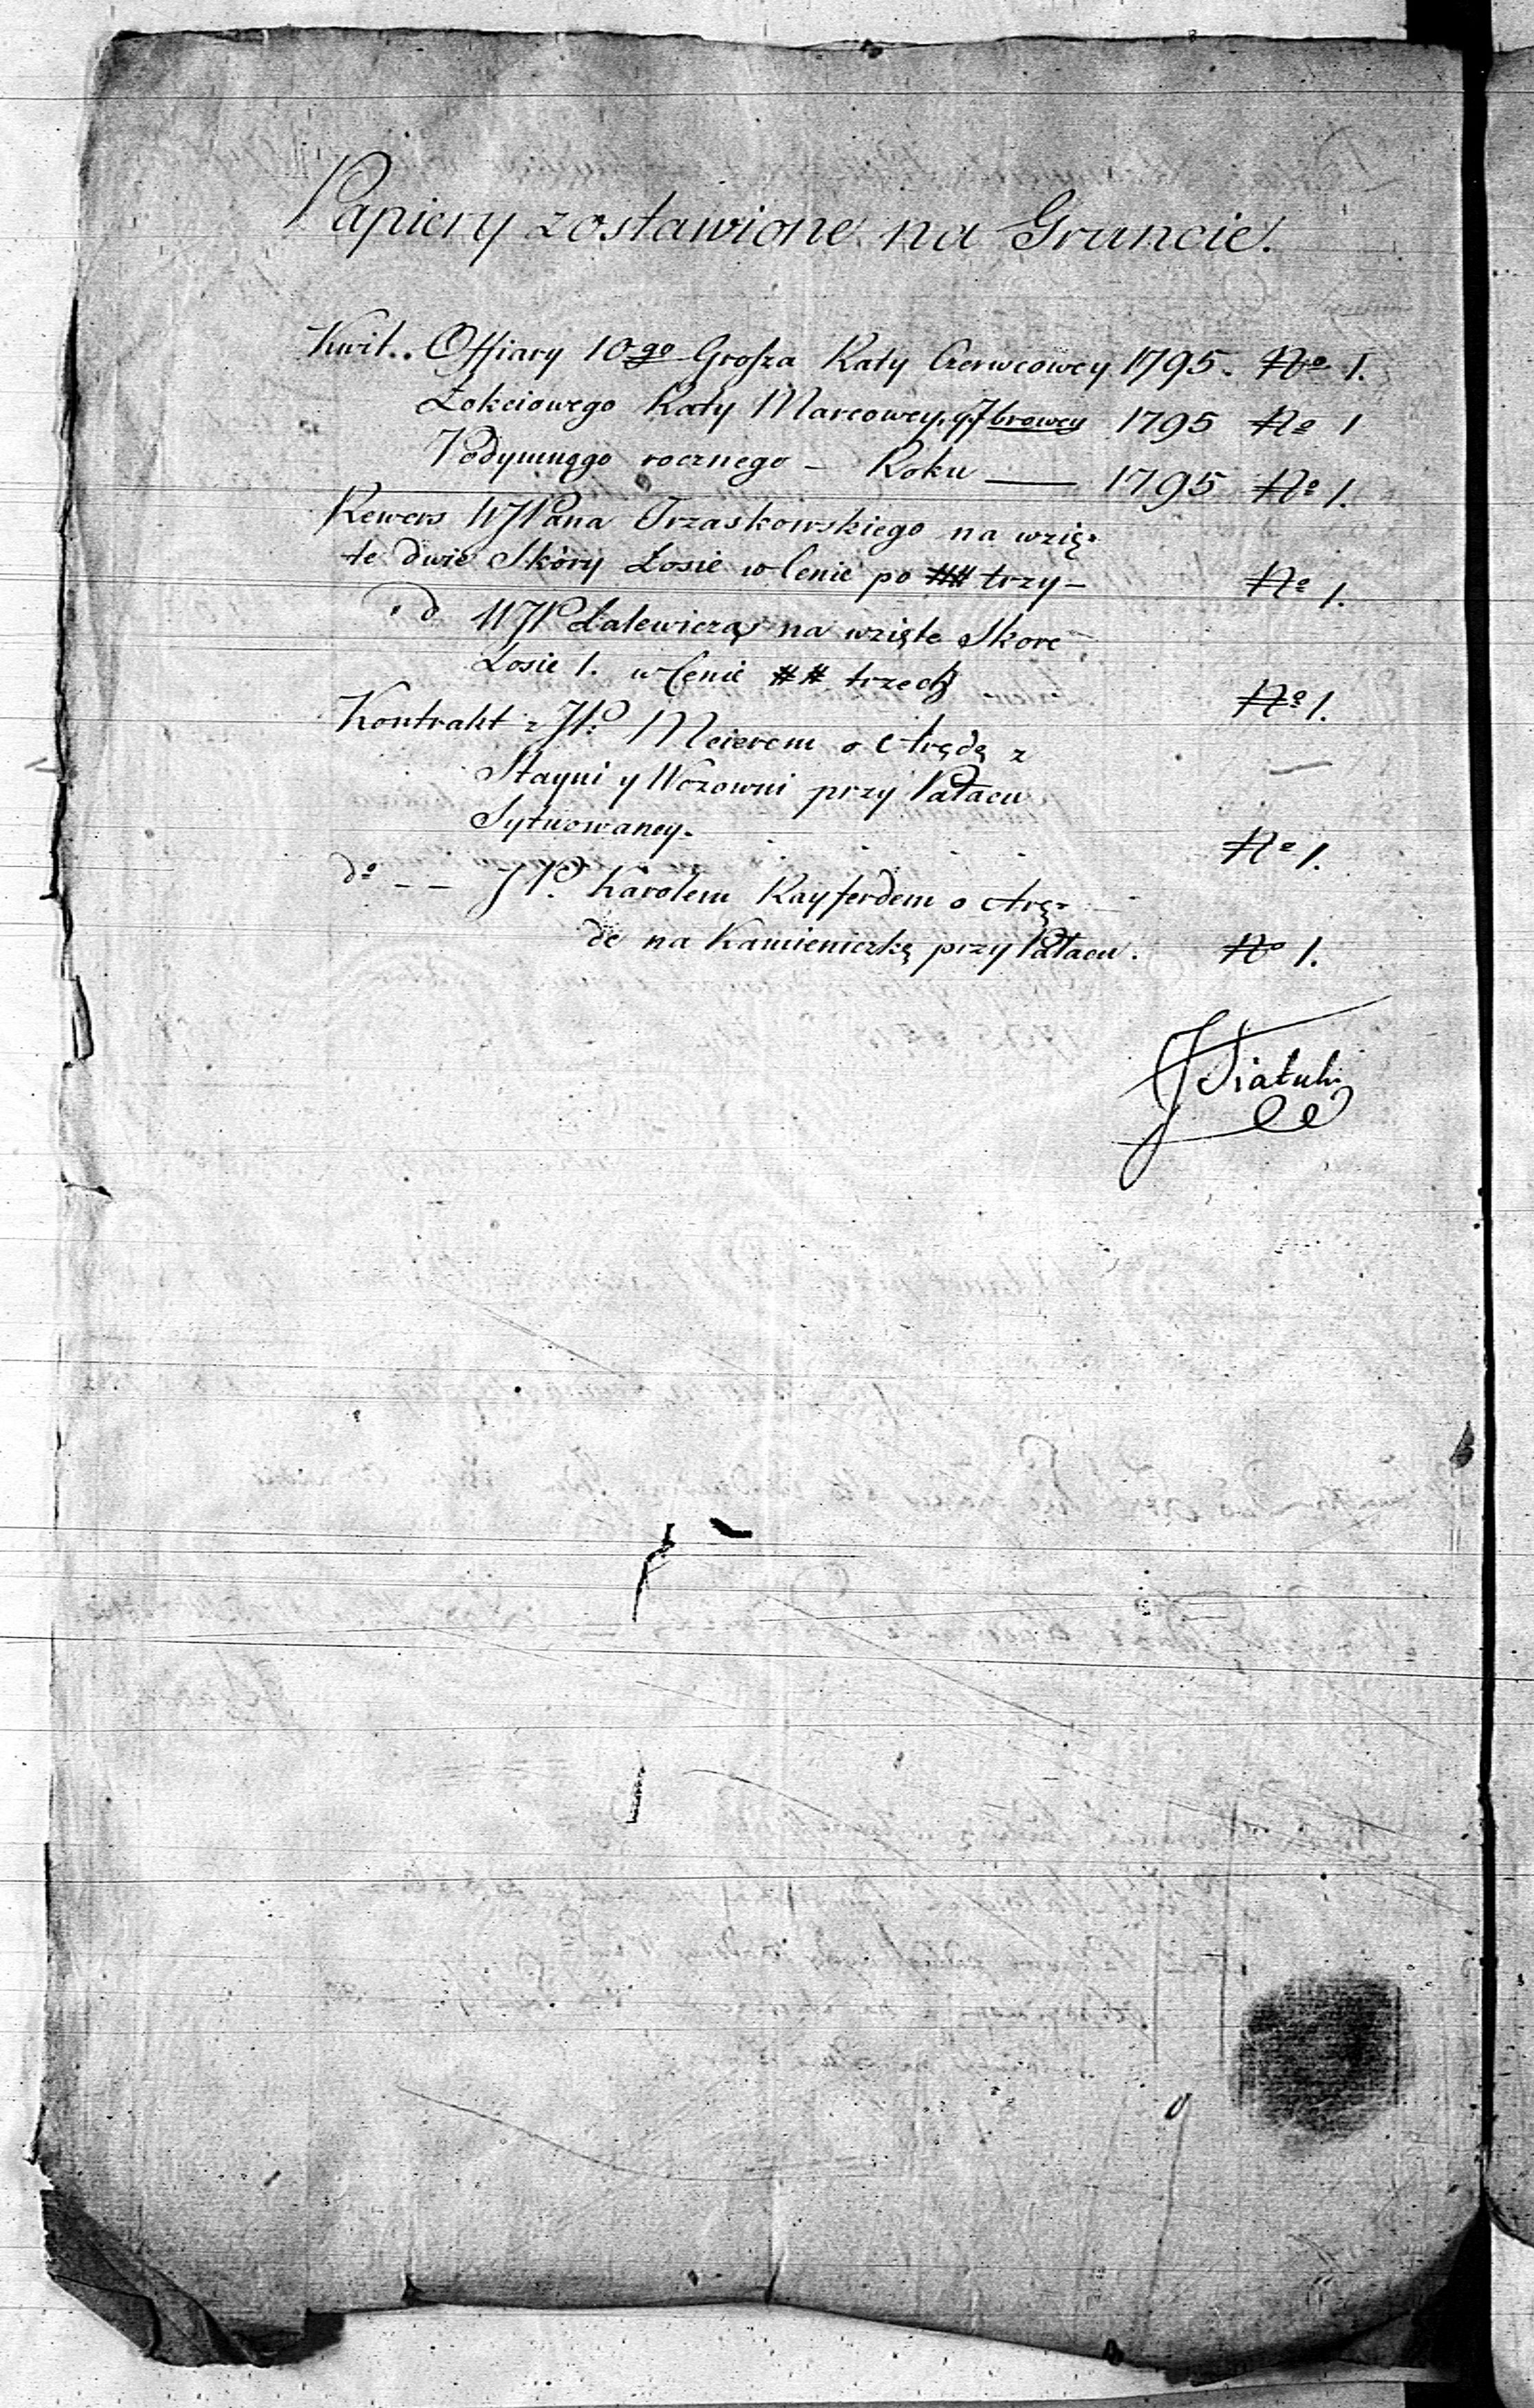 Papiery zostawione na Gruncie.
Kwit.. Offiary 10go Grosza Raty Czerwcowey 1795. No 1.
Łokciowego Raty Marcowey, y 7browey 1795 No 1
Podymnego rocznego – Roku — 1795 No 1.
Rewers WJPana Trzaskowskiego na wzię-
te dwie Skóry Łosie w Cenie po ## trzy – No 1.
d WJP Zalewicza na wzięte Skore
Łosie 1. w Cenie ## trzech No 1.
Kontrakt z JP. Meierem o Arędę z
Stayni y Wozowni przy Pałacu
Sytuowaney. No 1.
do – – JP. Karolem Rayferdem o Arę-
de na Kamieniczkę przy Pałacu. No 1.